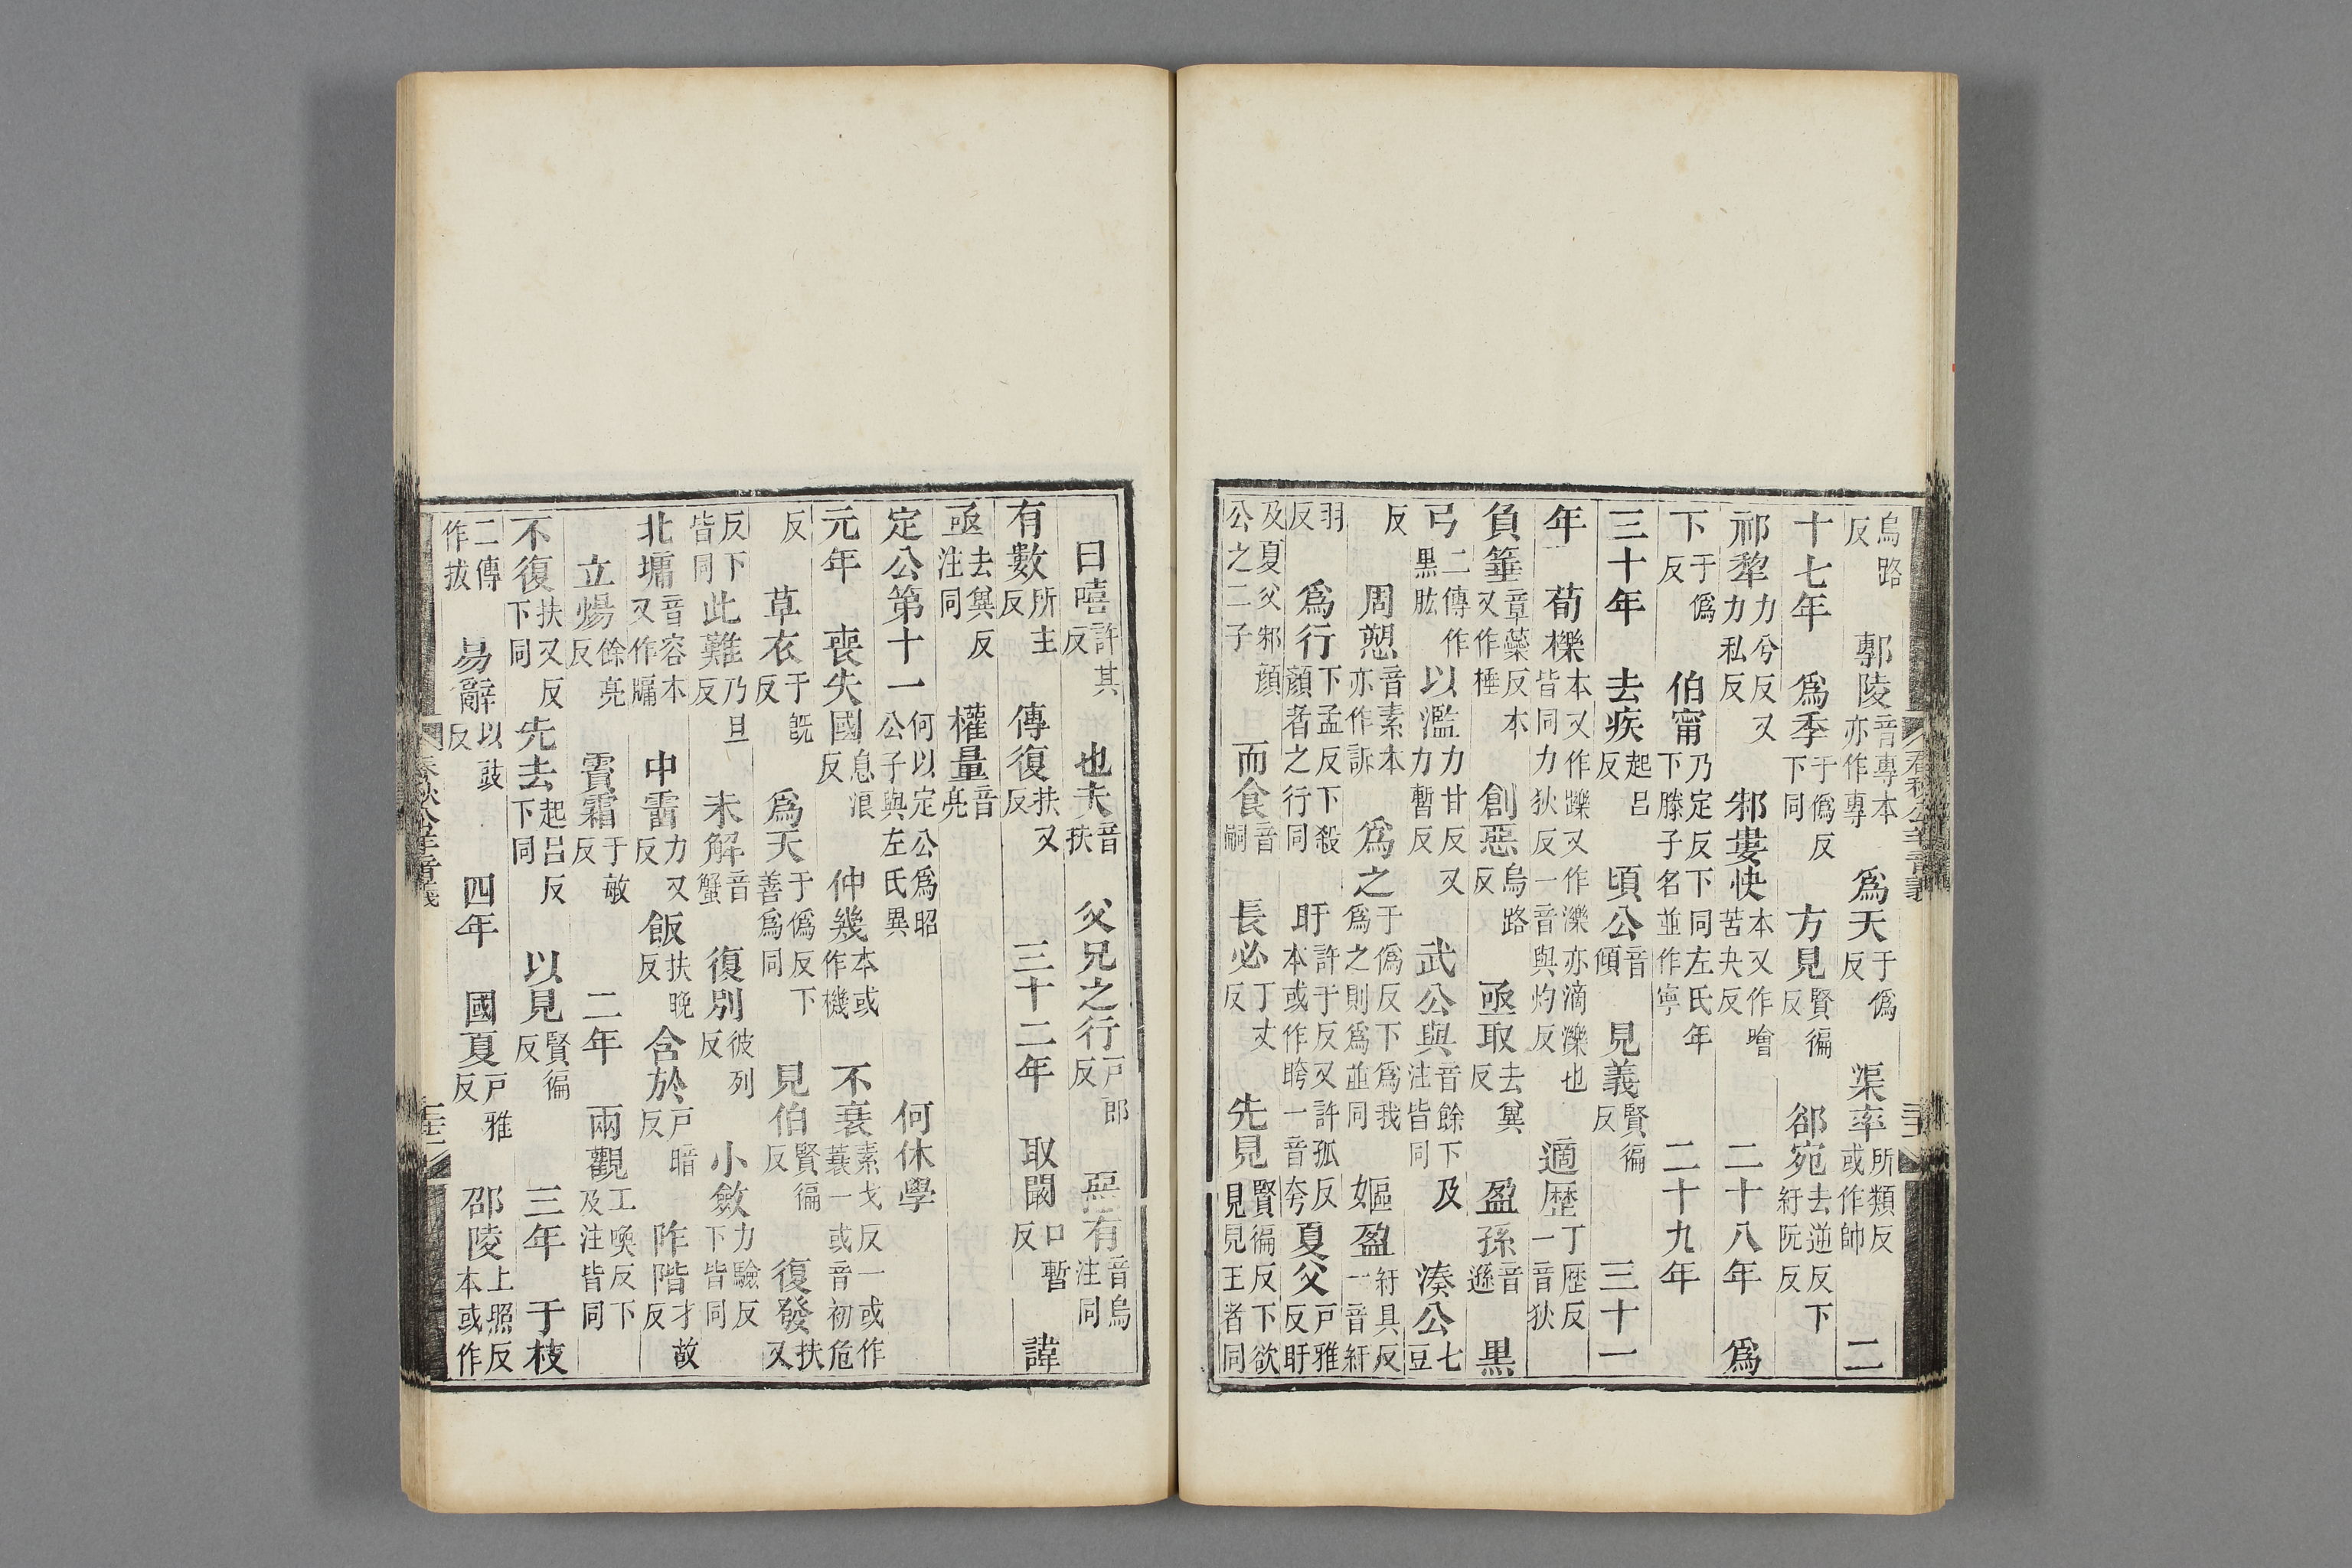 烏路反　鄟陵音專本亦作專　爲天于僞反　渠率所類反或作帥　二
十七年　爲季于僞反下同　方見賢徧反　郤宛去逆反下紆阮反
祁犂力兮反又力私反　邾婁快本又作噲苦夬反　二十八年　爲
下于僞反　伯甯乃定反下同左氏年下滕子名並作寧　二十九年
三十年　去疾起呂反　頃公音傾　見義賢徧反　三十一
年　荀櫟本又作躒又作濼亦滴濼也皆同力狄反一音與灼反　適歷丁歷反一音狄
負箠章蘂反本又作棰　創惡烏路反　亟取去兾反　盈孫音遜　黒
弓二傳作黒肱　以濫力甘反又力暫反　武公與音餘下及注皆同　湊公七豆
反　周愬音素本亦作訴　爲之于僞反下爲我爲之則爲並同　嫗盈紆具反一音紆
羽反　爲行下孟反下殺顔者之行同　盱許于反又許孤反本或作盻一音夸　夏父戸雅反盱
及夏父邾顔公之二子　而食音嗣　長必丁丈反　先見賢徧反下欲見見王者同
曰嘻許其反　也夫音扶　父兄之行戸郎反　惡有音烏注同
有數所主反　傳復扶又反　三十二年　取闞口暫反　諱
亟去兾反注同　權量音亮
定公第十一何以定公爲昭公子與左氏異　何休學
元年　喪失國息浪反　仲幾本或作機　不蓑素戈反一或作蓑一或音初危
反　草衣于旣反　爲天于僞反下善爲同　見伯賢徧反　復發扶又
反下皆同　此難乃旦反　未解音蟹　復別彼列反　小斂力驗反下皆同
北墉音容本又作牖　中霤力又反　飯扶晚反　含於戸暗反　阼階才故反
立煬餘亮反　䨘霜于敏反　二年　兩觀工喚反下及注皆同
不復扶又反下同　先去起呂反下同　以見賢徧反　三年　于枝
二傳作拔　易辭以豉反　四年　國夏戸雅反　邵陵上照反本或作
春秋公羊音義